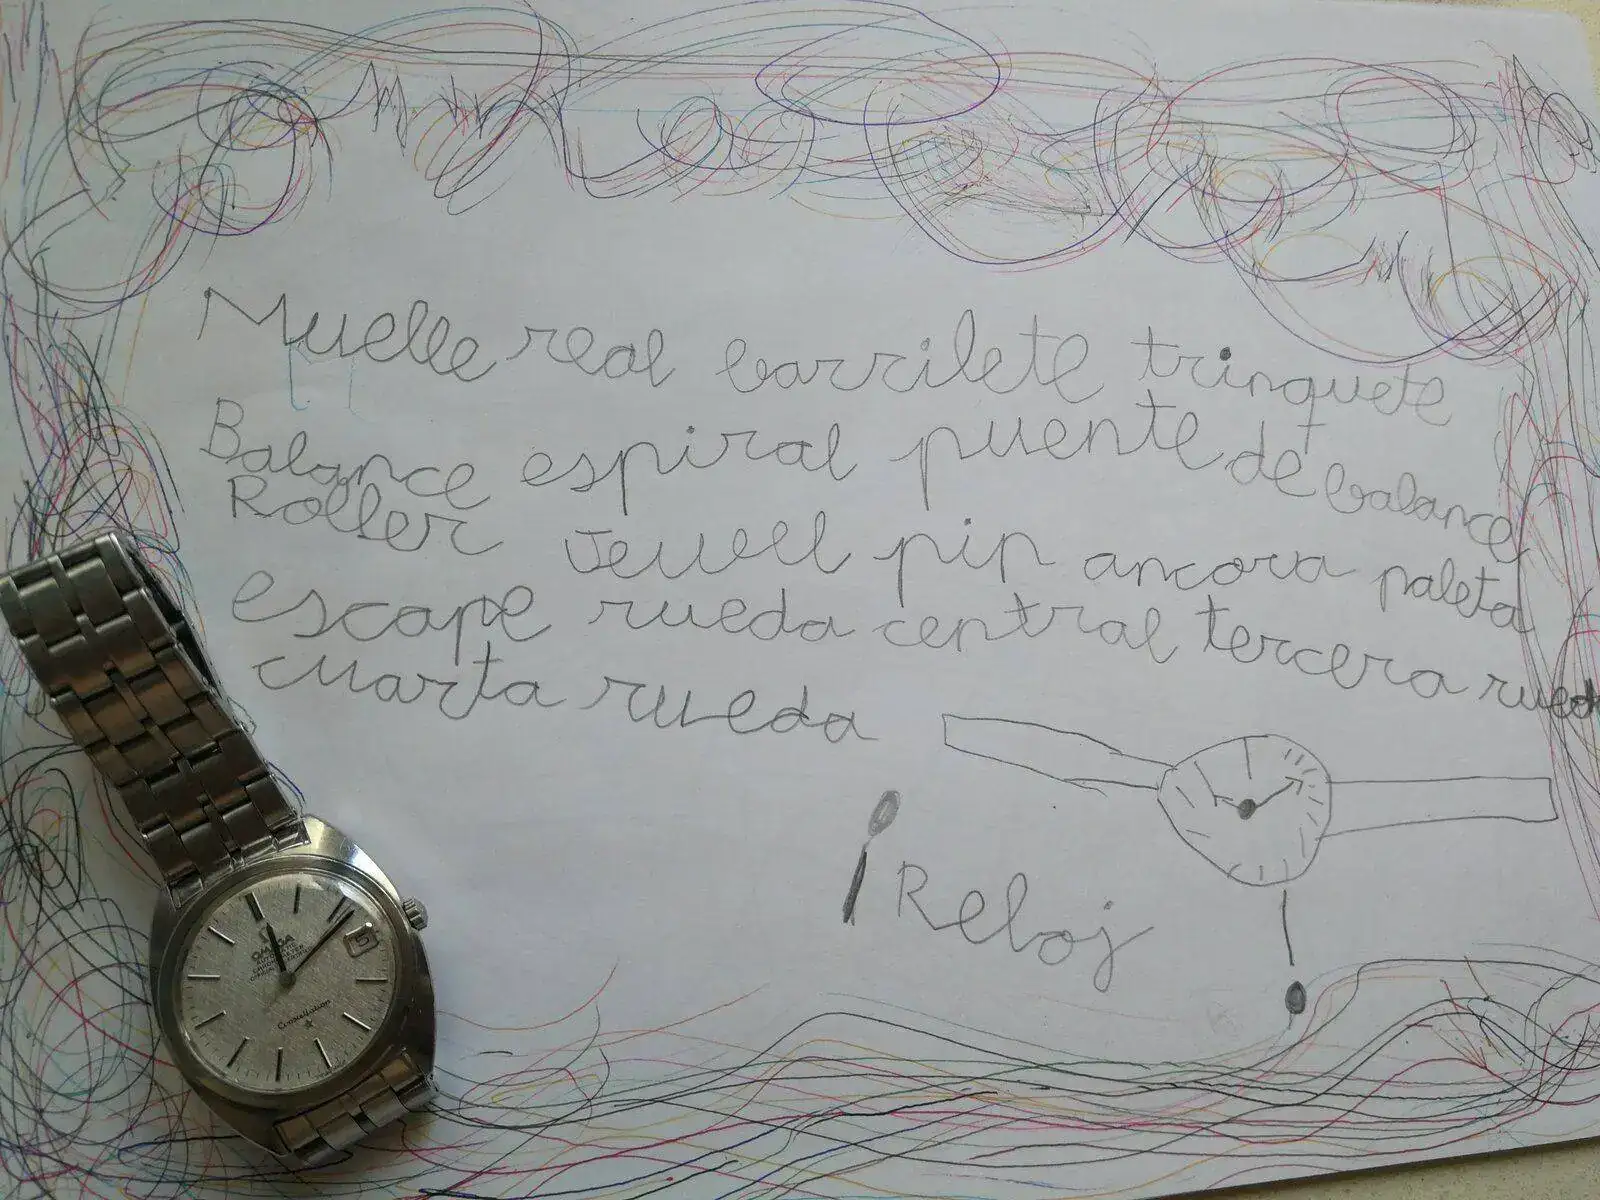 Muelle real barrilete trinquete
Balance espiral puente de balance
Roller Jewell pin ancora paleta
escape rueda central tercera rueda
cuarta rueda
Reloj
OMEGA
AUTOMATIC
CHRONOMETER
Constellation
5